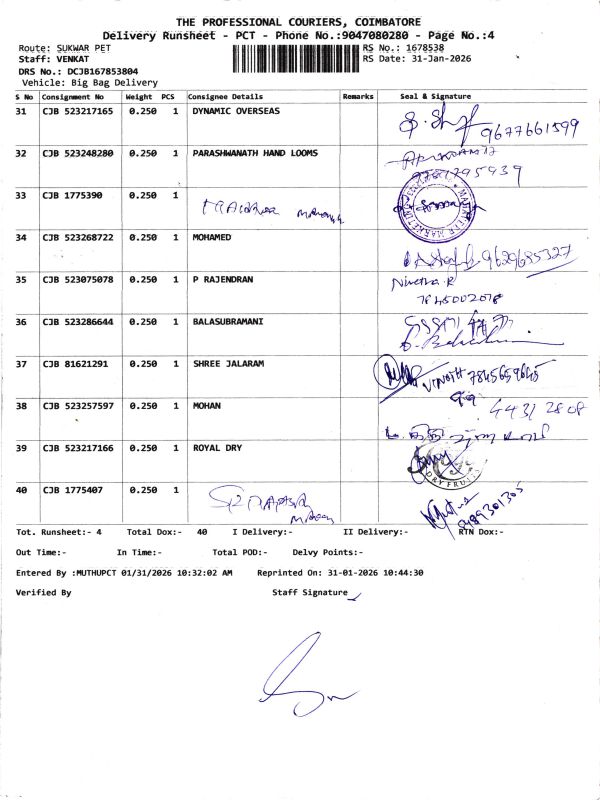 THE PROFESSIONAL COURIERS, COIMBATORE
Delivery Runsheet - PCT - Phone No.:9047080280 - Page No.:4
Route: SUKWAR PET
RS No.: 1678538
Staff: VENKAT
RS Date: 31-Jan-2026
DRS No.: DCJB167853804
Vehicle: Big Bag Delivery
S No Consignment No Weight PCS Consignee Details Remarks Seal & Signature
31 CJB 523217165 0.250 1 DYNAMIC OVERSEAS 9677661599
32 CJB 523248280 0.250 1 PARASHWANATH HAND LOOMS
33 CJB 1775390 0.250 1
34 CJB 523268722 0.250 1 MOHAMED 9629685327
35 CJB 523075078 0.250 1 P RAJENDRAN Nivetha.R
7845002018
36 CJB 523286644 0.250 1 BALASUBRAMANI
37 CJB 81621291 1 0.250 1 SHREE JALARAM VINOTH 7845659645
38 CJB 523257597 0.250 1 MOHAN
39 CJB 523217166 0.250 1 ROYAL DRY
DRY FRUITS
40 CJB 1775407 0.250 1 9489301305
Tot. Runsheet:- 4 Total Dox:- 40 I Delivery:- II Delivery:- RTN Dox:-
Out Time:- In Time:- Total POD:- Delvy Points:-
Entered By :MUTHUPCT 01/31/2026 10:32:02 AM Reprinted On: 31-01-2026 10:44:30
Verified By Staff Signature